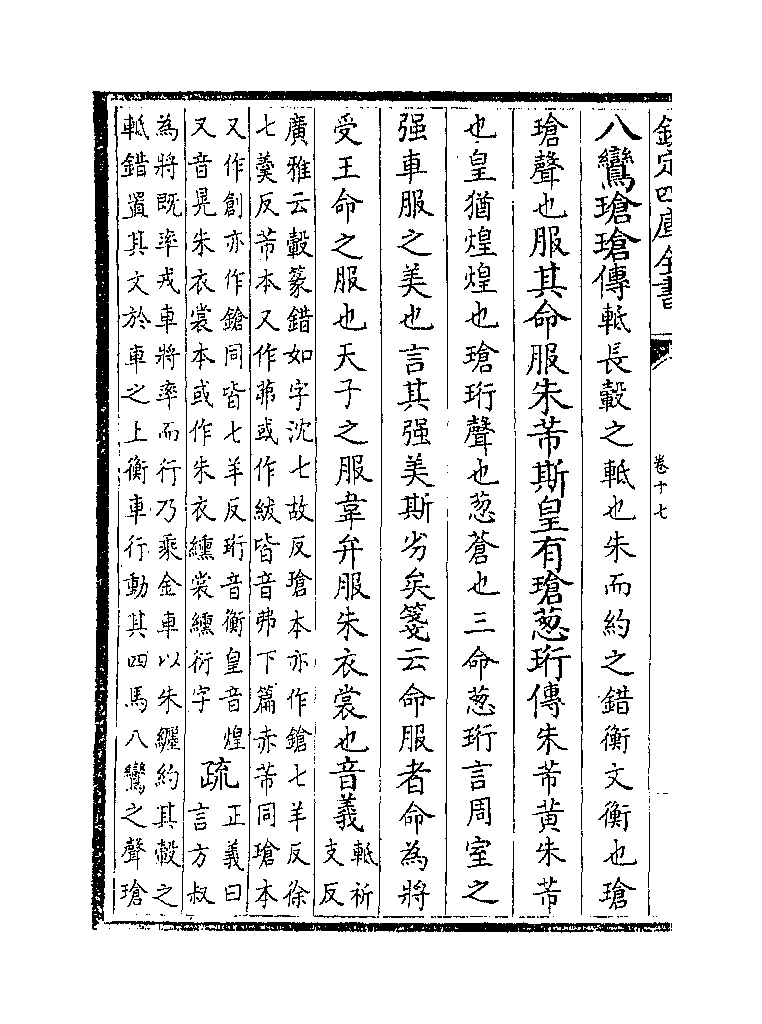 欽定四庫全書
卷十七
八鸞瑲瑲傳軝長轂之軝也朱而約之錯衡文衡也瑲
瑲聲也服其命服朱芾斯皇有瑲葱珩傳朱芾黄朱芾
也皇猶煌煌也瑲珩聲也葱蒼也三命葱珩言周室之
强車服之美也言其强美斯劣矣箋云命服者命為將
受王命之服也天子之服韋弁服朱衣裳也音義
軝祈
支反
廣雅云轂篆錯如字沈七故反瑲本亦作鎗七羊反徐
七羹反芾本又作茀或作紱皆音弗下篇赤芾同瑲本
又作創亦作鎗同皆七羊反珩音衡皇音煌
又音晃朱衣裳本或作朱衣纁裳纁衍字
疏
正義曰
言方叔
為將既率戎車將率而行乃乘金車以朱纒約其轂之
軝錯置其文於車之上衡車行動其四馬八鸞之聲瑲